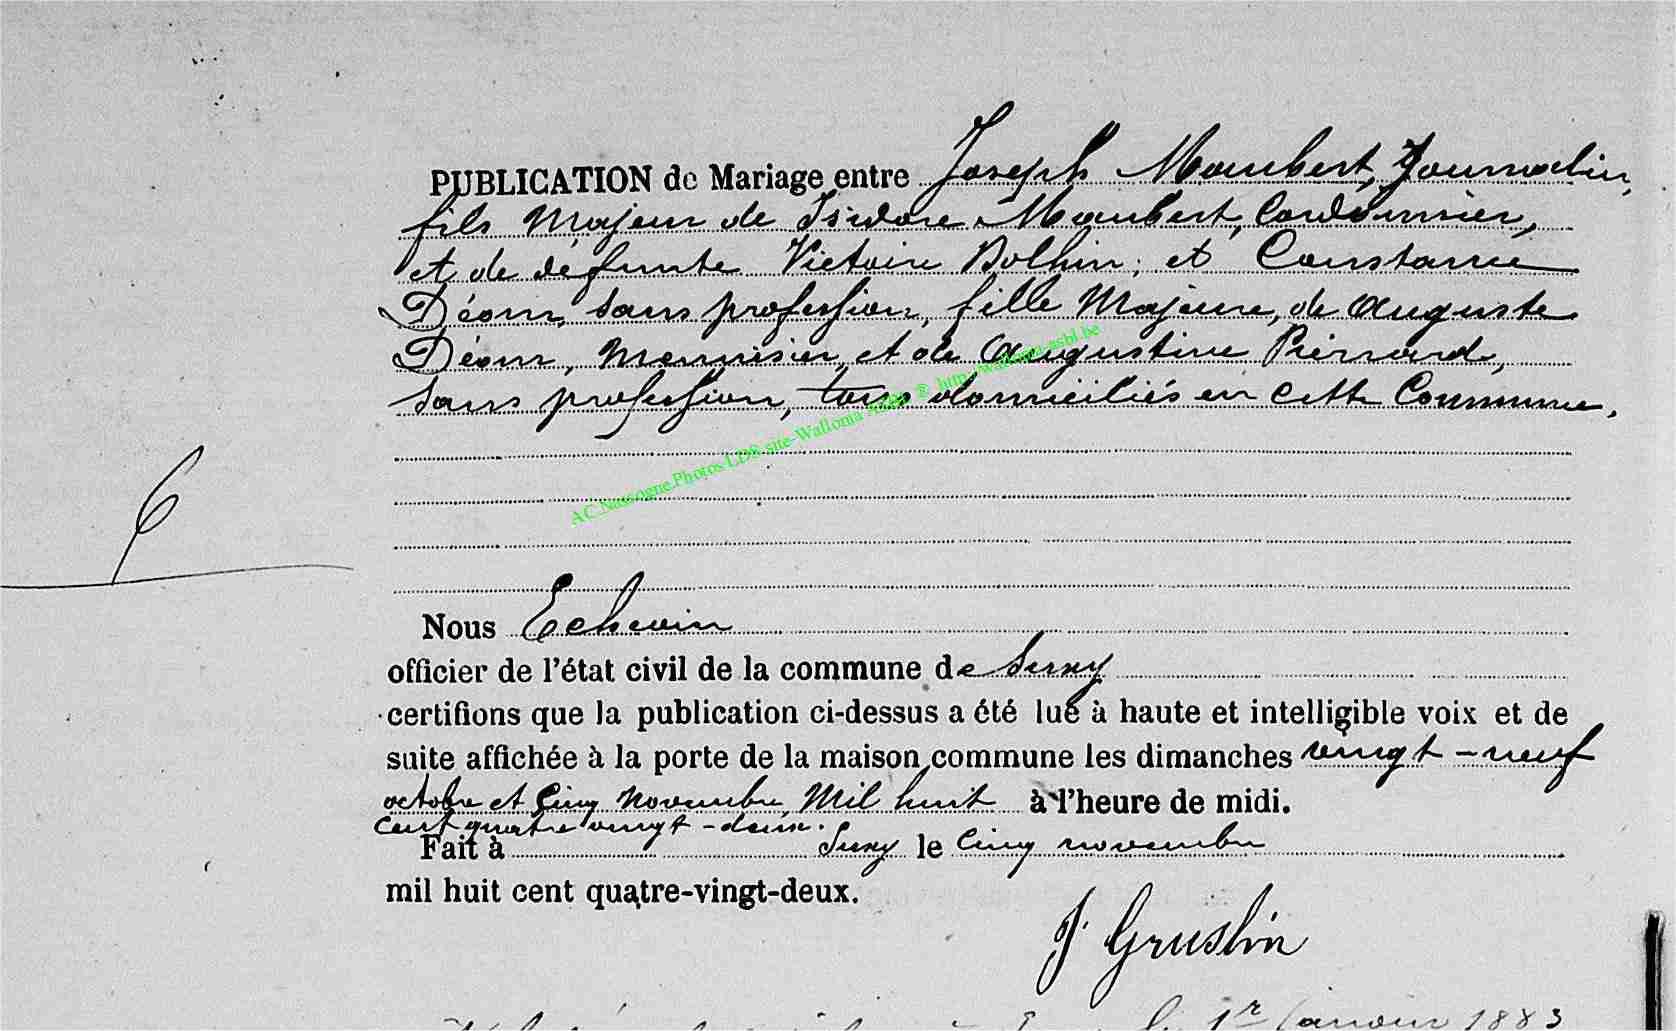 PUBLICATION de Mariage entre Joseph Maubert, Journalier,
fils Majeur de Isidore Maubert, Cordonnier,
et de défunte Victoire Dolhin, et Constance
Déom, sans profession, fille Majeure, de Auguste
Déom, Menuisier, et de Augustine Pierrard,
sans profession, tous domiciliés en cette Commune.
AC.Nassogne.Photos LDS site-Wallonia ASBL © http://wallonia-asbl.be
6
Nous Echevin
officier de l'état civil de la commune de Suxy
certifions que la publication ci-dessus a été lue à haute et intelligible voix et de
suite affichée à la porte de la maison commune les dimanches vingt-neuf
octobre et cinq novembre Mil huit à l'heure de midi.
cent quatre vingt-deux.
Fait à Suxy le cinq novembre
mil huit cent quatre-vingt-deux.
J Gruslin
1r janvier 1883